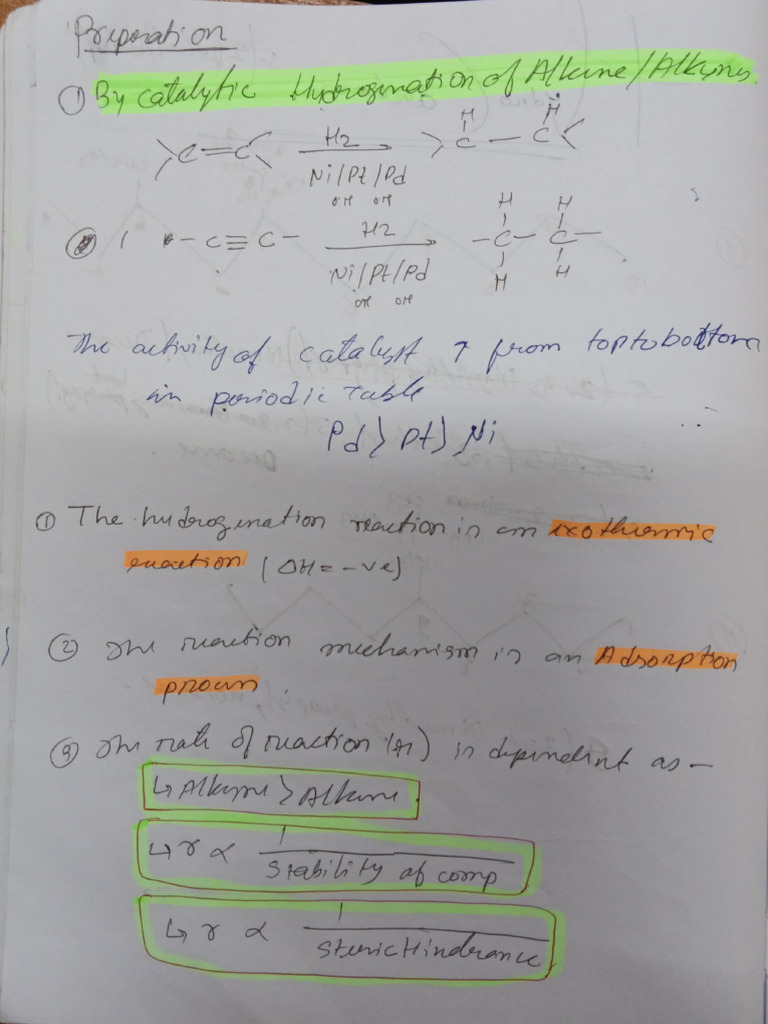 Preparation
① By catalytic Hydrogenation of Alkene/Alkynes.
H H
>C=C< H2 >C-C<
Ni/Pt/Pd
or or
H H
② -C≡C- H2 -C-C-
Ni/Pt/Pd H H
or or
The activity of catalyst ↑ from top to bottom
in periodic table
Pd > Pt > Ni
① The hydrogenation reaction is an exothermic
reaction (ΔH = -ve)
② The reaction mechanism is an Adsorption
process.
③ The rate of reaction (r) is dependent as -
↳ Alkyne > Alkene.
↳ r ∝ 1
Stability of comp
↳ r ∝ 1
Steric Hindrance